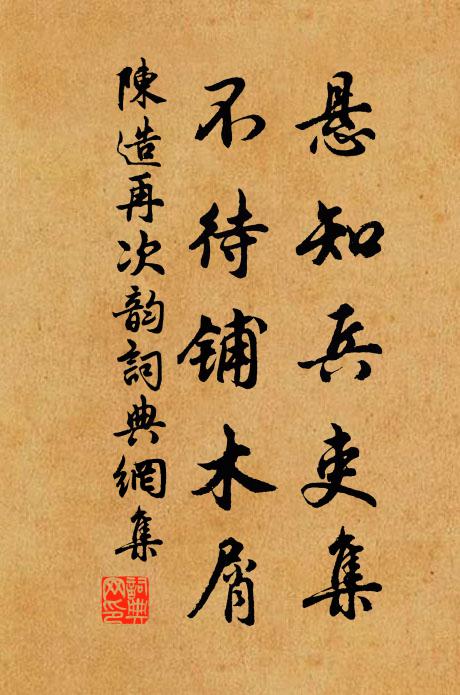 悬知兵吏集
不待铺木屑
陳造再次韵詞典網集
詞典网印